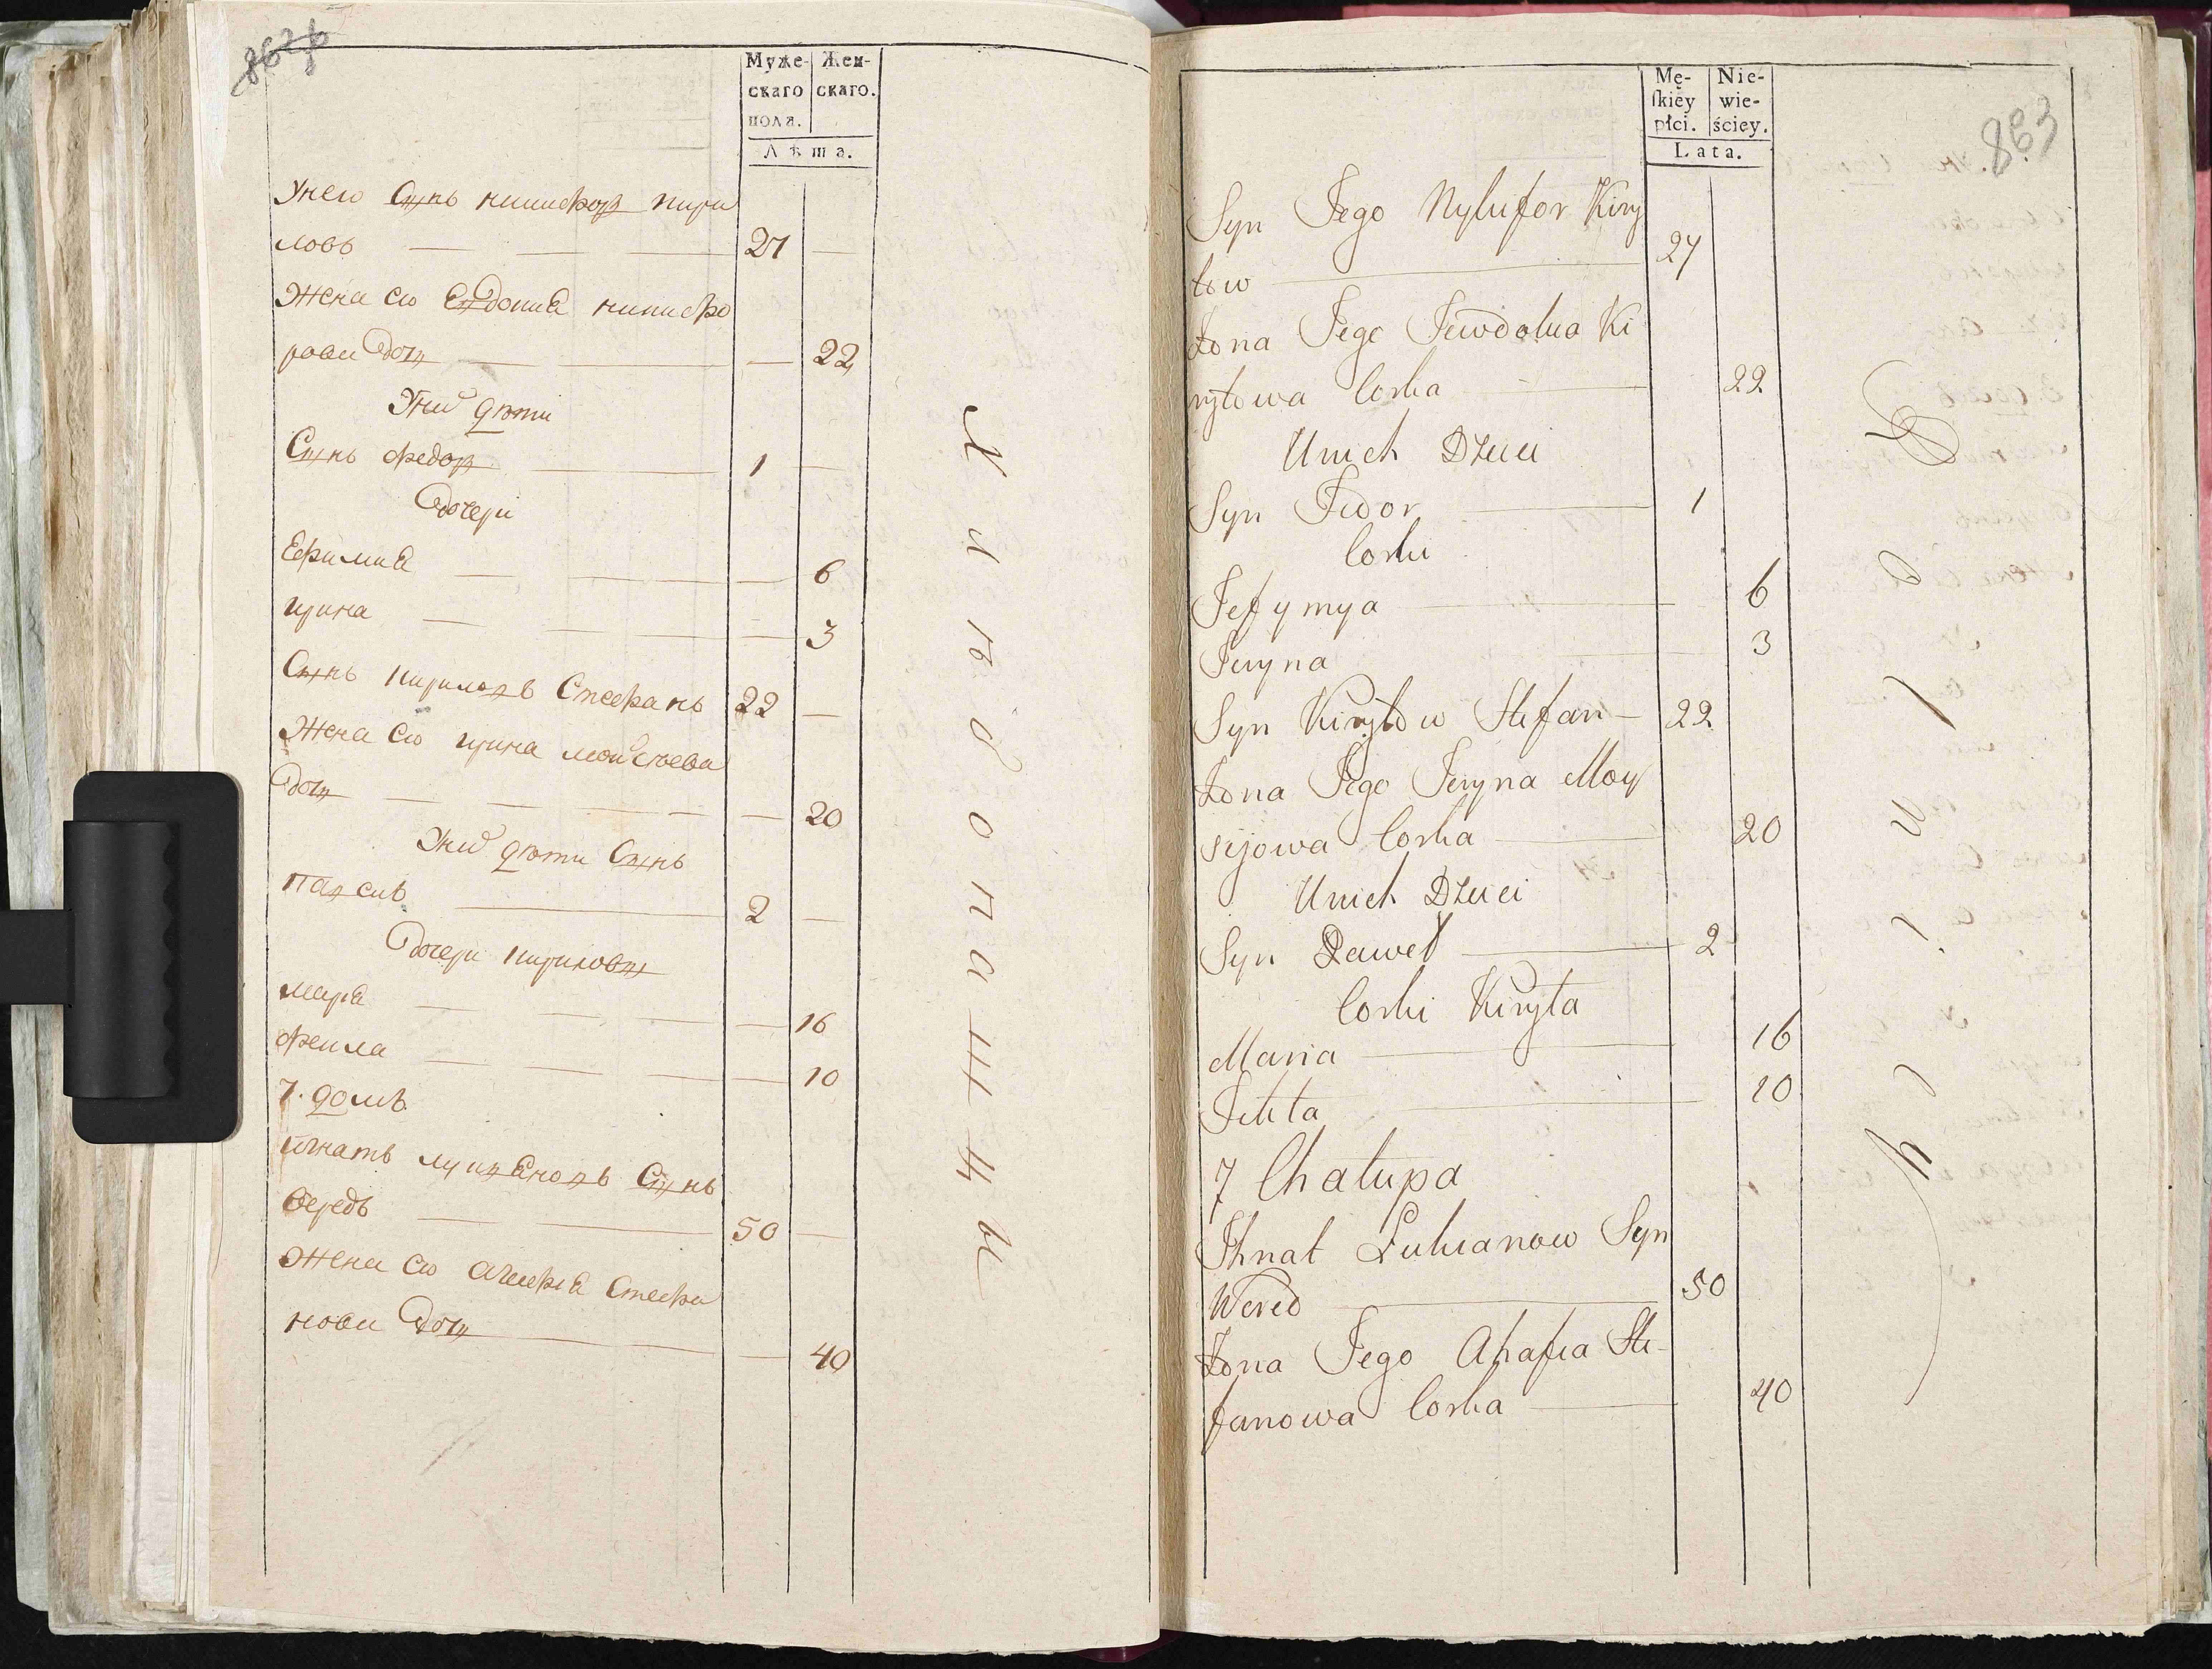 862 об
Муже- Жен-
скаго скаго.
пола.
Лѣта.
Унего Сынъ никифоръ кири
ловъ 27
Жена его Евдокиа никифо
рова дочь 22
Унихъ дѣти
Сынъ федоръ 1
Дочери
Ефимиа 6
ирина 3
Сынъ кириловъ Стефанъ 22
Жена его ирина мойсѣева
Дочь 20
Унихъ дѣти Сынъ
Павелъ 2
Дочери кириловы
мариа 16
фекла 10
7. домъ
игнатъ лукиановъ Сынъ
вередъ 50
Жена его агафиа Стефа
нова Дочь 40
863
Mę- Nie-
skiey wie-
płci. ściey.
Lata.
Syn Jego Nykifor Kiry
łow 27
Żona Jego Jewdokia Ki
ryłowa Corka 22
Unich Dzieci
Syn Fedor 1
Corki
Jefymya 6
Jeryna 3
Syn Kiryłow Stefan 22
Żona Jego Jeryna Moy
sijowa Corka 20
Unich Dzieci
Syn Paweł 2
Corki Kiryła
Maria 16
Fekla 10
7 Chałupa
Ihnat Lukianow Syn
Wered 50
Żona Jego Ahafia Ste-
fanowa Corka 40